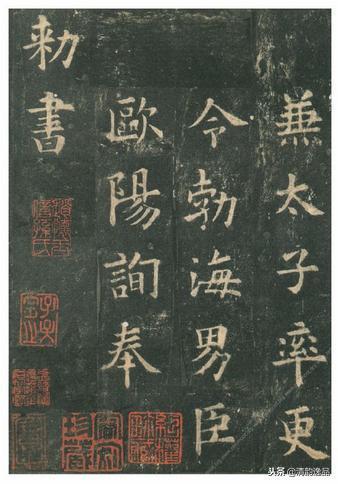 兼太子率更
令勃海男臣
歐陽詢奉
勑書
头条@清韵逸品